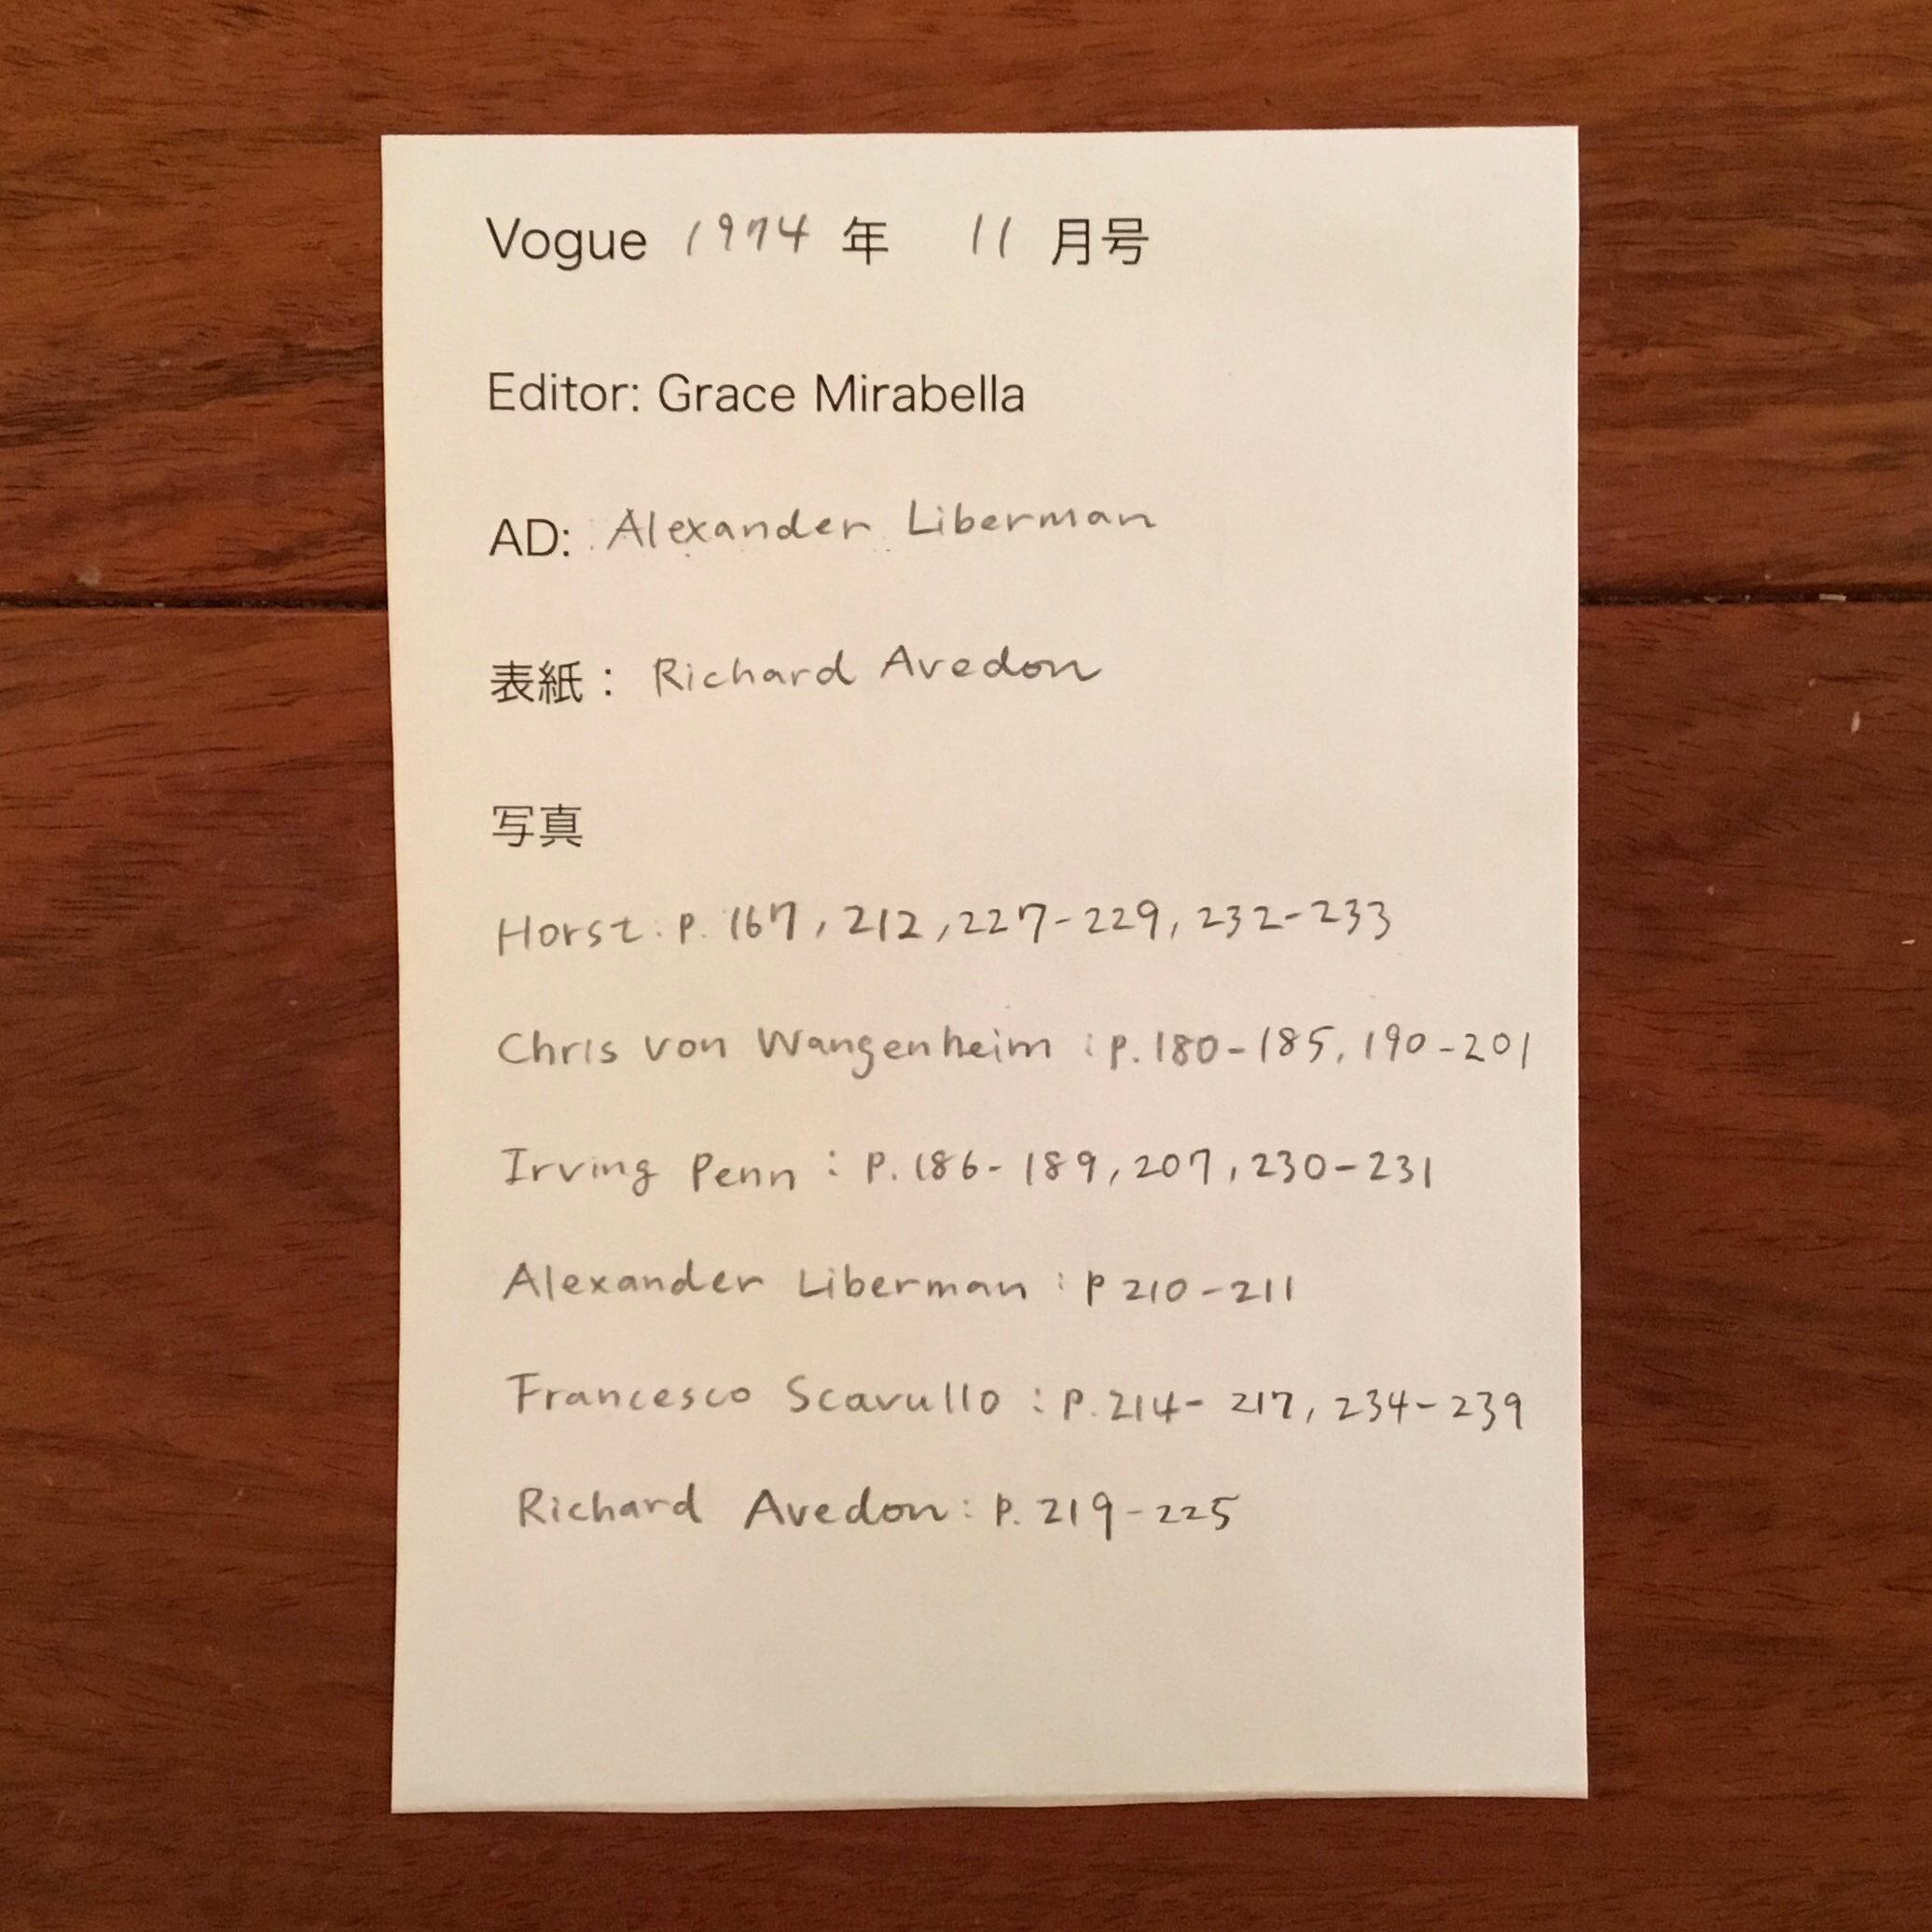 Vogue 1974 年 11 月号
Editor: Grace Mirabella
AD: Alexander Liberman
表紙： Richard Avedon
写真
Horst: p. 167, 212, 227-229, 232-233
Chris von Wangenheim : p. 180-185, 190-201
Irving Penn : P. 186-189, 207, 230-231
Alexander Liberman : p 210-211
Francesco Scavullo : p. 214-217, 234-239
Richard Avedon: p. 219-225